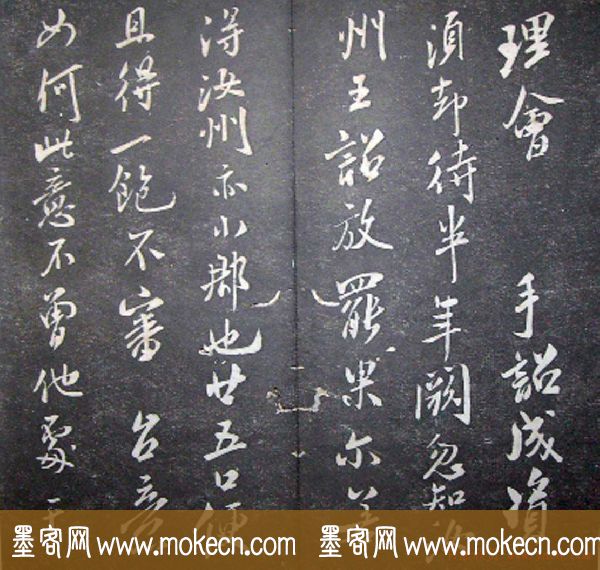 理會 手詔成資
須却待半年闕忽知汝
州王詔放罷果尓若
得汝州亦小郡也廿五口便
且得一飽不審 台意
如何此意不曾他處
墨客网 www.mokecn.com 墨客网 www.mokecn.com